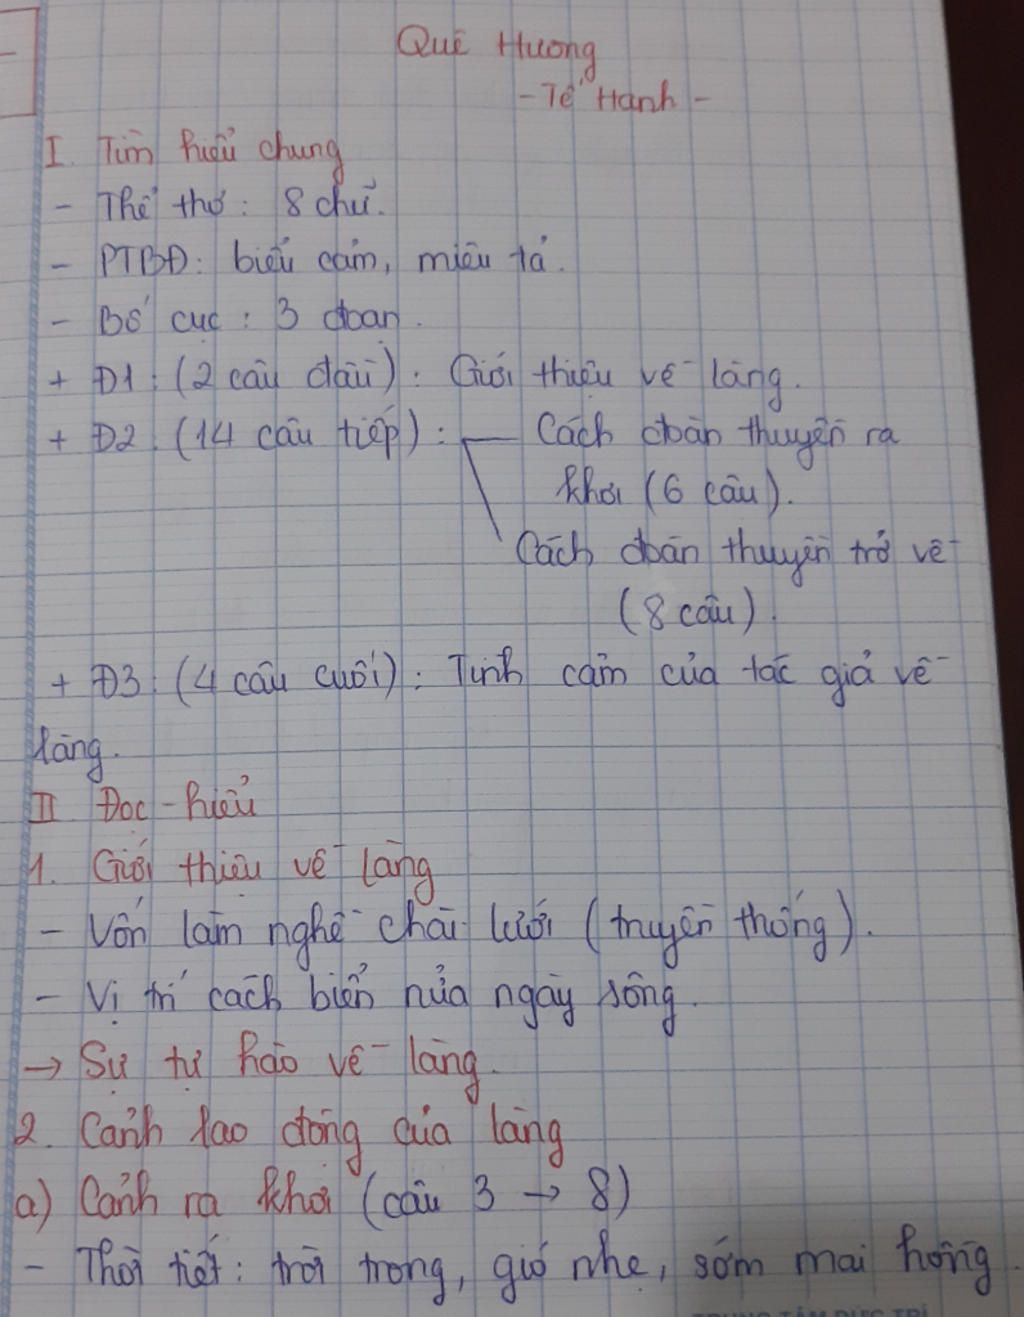 Quê Hương
- Tế Hanh -
I. Tìm hiểu chung
- Thể thơ: 8 chữ.
- PTBĐ: biểu cảm, miêu tả.
- Bố cục: 3 đoạn.
+ Đ1: (2 câu đầu): Giới thiệu về làng.
+ Đ2: (14 câu tiếp): Cách đoàn thuyền ra
khơi (6 câu).
Cách đoàn thuyền trở về
(8 câu).
+ Đ3: (4 câu cuối): Tình cảm của tác giả về
làng.
II Đọc - hiểu
1. Giới thiệu về làng
- Vốn làm nghề chài lưới (truyền thống).
- Vị trí cách biển nửa ngày sông.
→ Sự tự hào về làng.
2. Cảnh lao động của làng
a) Cảnh ra khơi (câu 3 → 8)
- Thời tiết: trời trong, gió nhẹ, sớm mai hồng.
TRUNG TÂM ĐỨC TRÍ